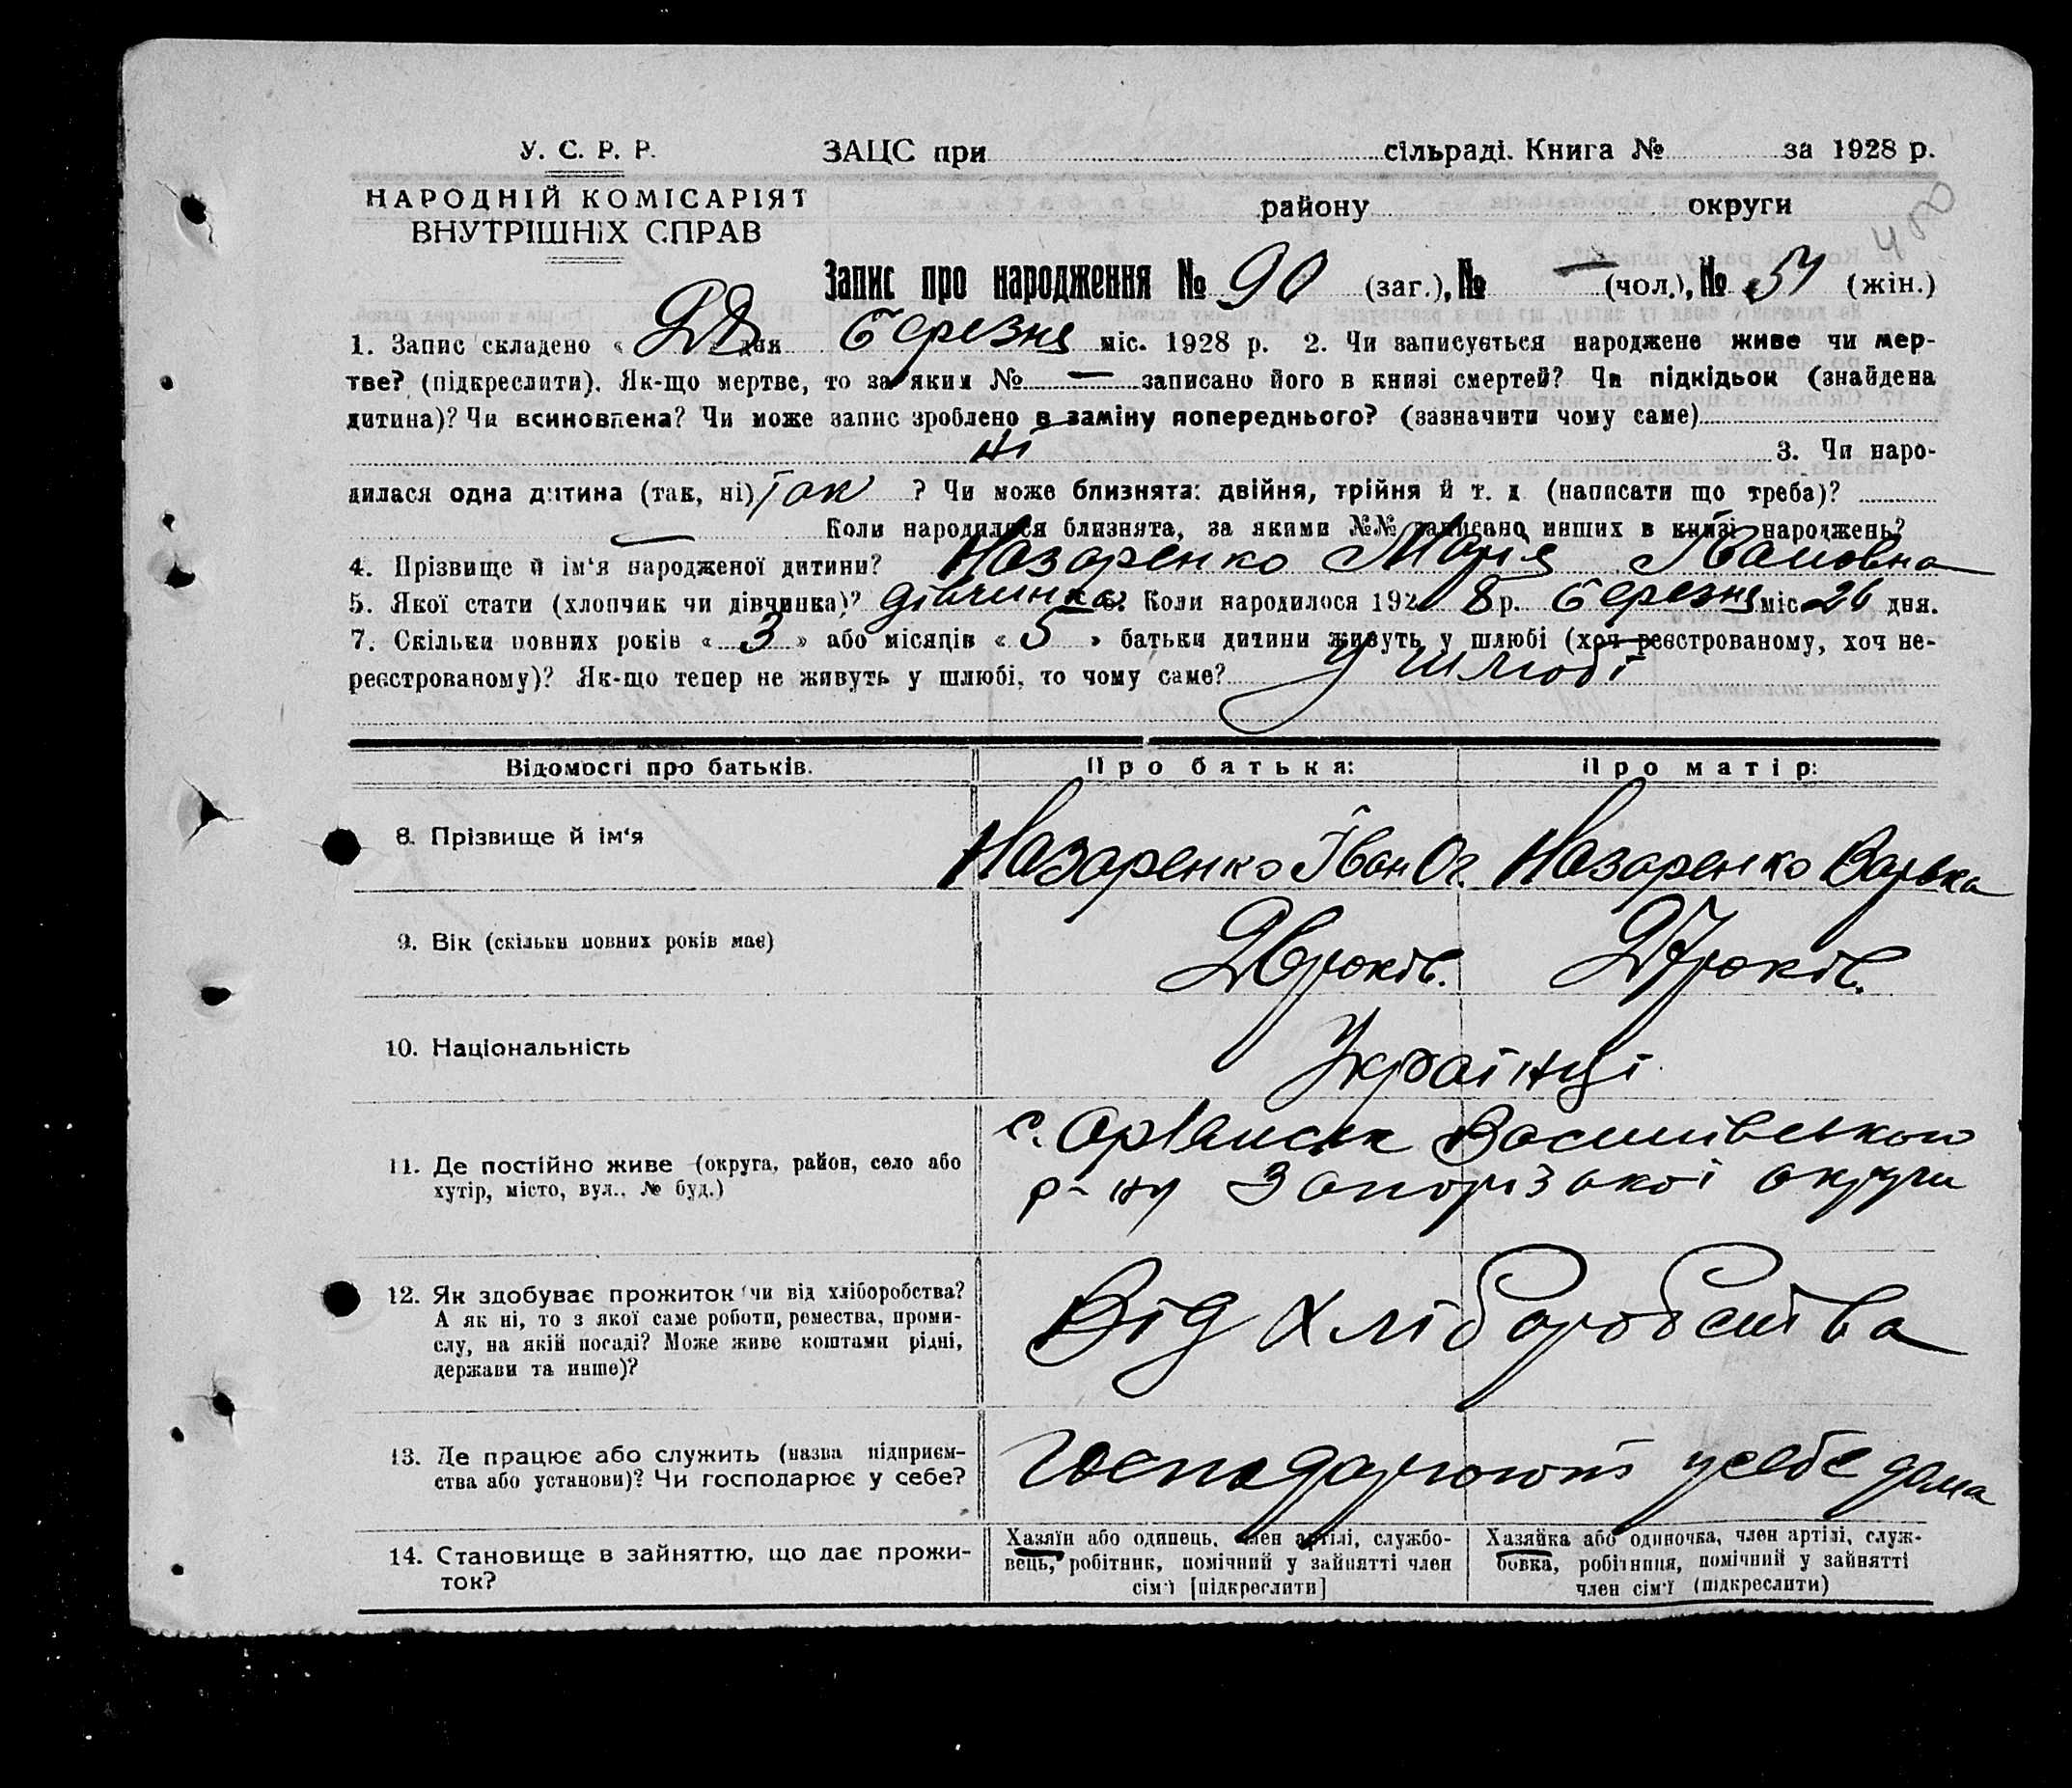 У. С. Р. Р. ЗАЦС при сільраді. Книга № за 1928 р.
НАРОДНІЙ КОМІСАРІЯТ
ВНУТРІШНІХ СПРАВ
району округи
400
Запис про народження № 90 (заг.), № — (чол.), № 51 (жін.)
1. Запис складено « дня Березня міс. 1928 р. 2. Чи записується народжене живе чи мер-
тве? (підкреслити). Як-що мертве, то за яким № — записано його в книзі смертей? Чи підкідьок (знайдена
дитина)? Чи всиновлена? Чи може запис зроблено в заміну попереднього? (зазначити чому саме)
Ні 3. Чи наро-
дилася одна дитина (так, ні) Так ? Чи може близнята: двійня, трійня й т. д. (написати що треба)?
— Коли народилося близнята, за якими №№ записано инших в книзі народжень?
4. Прізвище й ім‘я народженої дитини? Назаренко Марія Івановна
5. Якої стати (хлопчик чи дівчинка)? дівчинка 6. Коли народилося 192 8 р. Березня міс 26 дня.
7. Скільки повних років « 3 » або місяців « 5 » батьки дитини живуть у шлюбі (хоч реєстрованому, хоч не-
реєстрованому)? Як-що тепер не живуть у шлюбі, то чому саме? У шлюбі
Відомості про батьків. Про батька: Про матір:
8. Прізвище й ім‘я Назаренко Іван Ог. Назаренко Варька
9. Вік (скільки повних років має) років. 27 років.
10. Національність Українці
11. Де постійно живе (округа, район, село або
хутір, місто, вул., № буд.)
с. Василівського
р-ну Запорізької округи
12. Як здобуває прожиток (чи від хліборобства?
А як ні, то з якої саме роботи, ремества, проми-
слу, на якій посаді? Може живе коштами рідні,
держави та инше)?
Від хліборобства
13. Де працює або служить (назва підприєм-
ства або установи)? Чи господарює у себе?
Господарюють у себе дома
14. Становище в зайняттю, що дає прожи-
ток?
Хазяїн або одинець, член артілі, службо-
вець, робітник, помічний у зайнятті член
сім‘ї [підкреслити]
Хазяйка або одиночка, член артілі, служ-
бовка, робітниця, помічний у зайнятті
член сім‘ї (підкреслити)